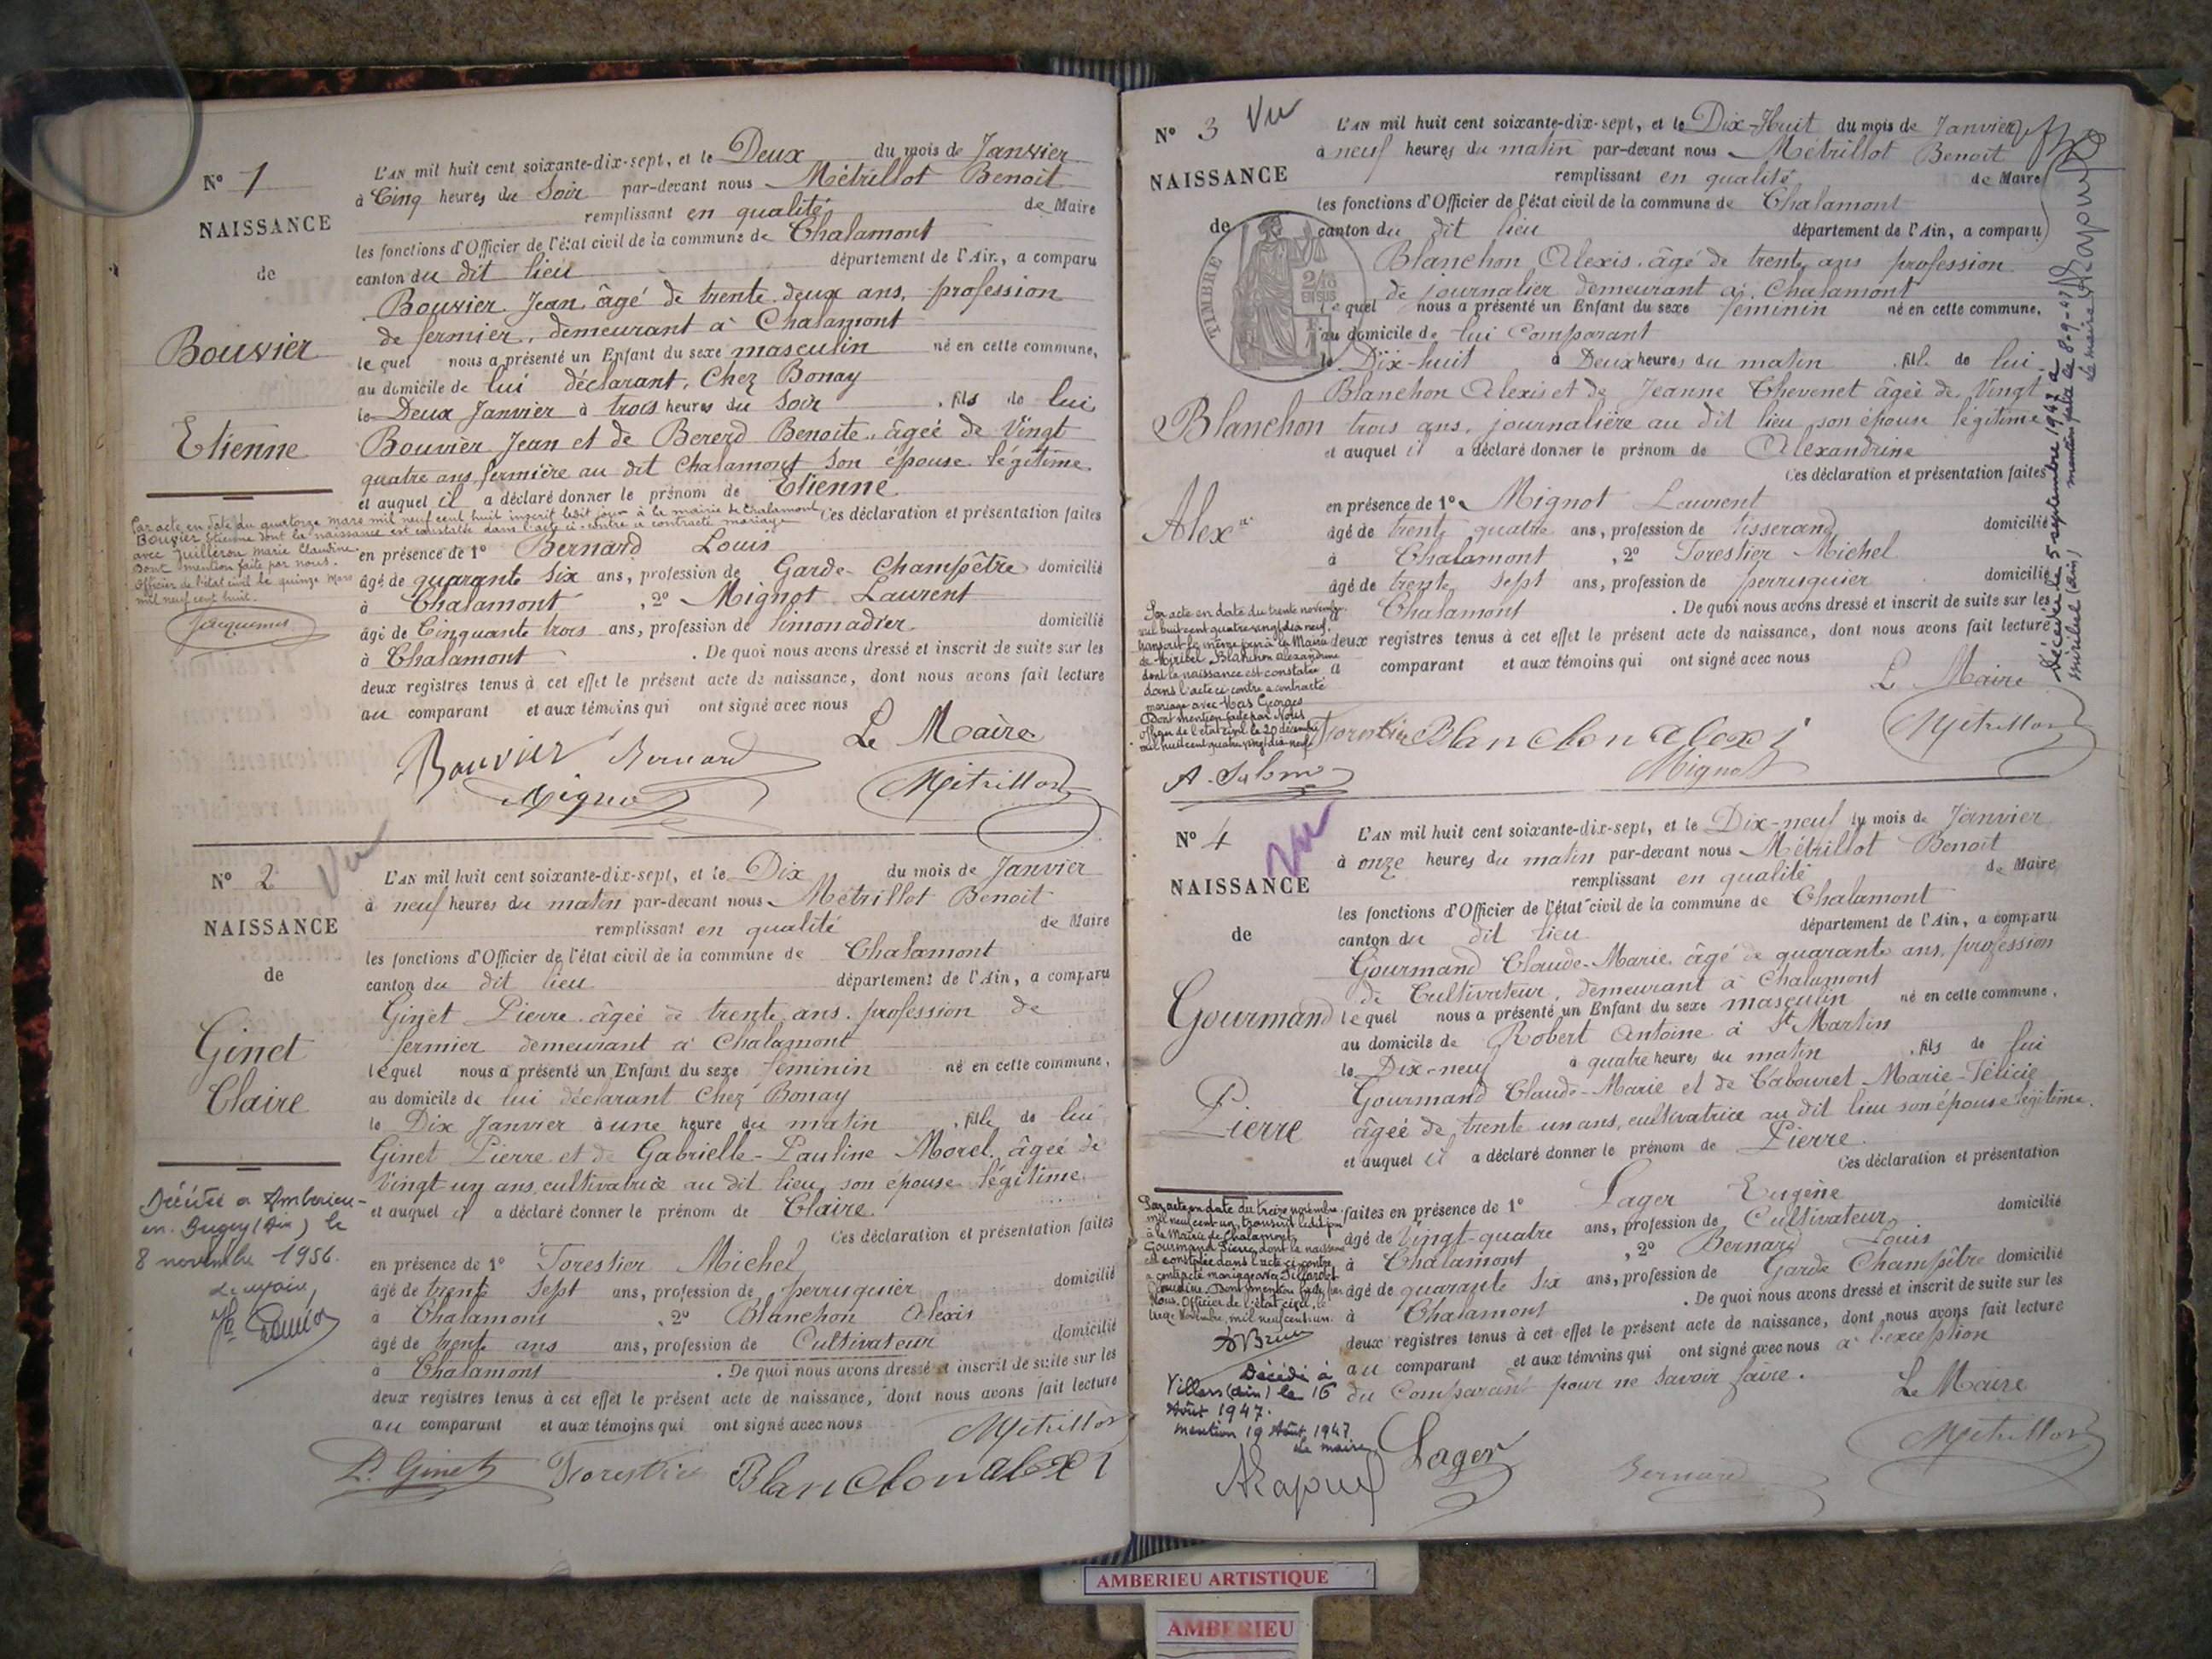 N° 1
NAISSANCE
de
Bouvier
Etienne
L'AN mil huit cent soixante-dix-sept, et le Deux du mois de Janvier
à Cinq heures du Soir par-devant nous Métrillot Benoit
remplissant en qualité de Maire
les fonctions d'Officier de l'état civil de la commune de Chalamont
canton du dit lieu département de l'Ain, a comparu
Bouvier Jean âgé de trente deux ans, profession
de fermier, demeurant à Chalamont
lequel nous a présenté un Enfant du sexe masculin né en cette commune,
au domicile de lui déclarant, Chez Bonay
le Deux Janvier à trois heures du Soir, fils de lui
Bouvier Jean et de Bererd Benoite, âgée de Vingt
quatre ans, fermière au dit Chalamont son épouse légitime
et auquel il a déclaré donner le prénom de Etienne
Ces déclaration et présentation faites
Par acte en date du quatorze mars mil neuf cent huit inscrit ledit jour à la mairie de Chalamont
Bouvier Etienne dont la naissance est constatée dans l'acte ci-contre a contracté mariage
avec Juilleron Marie Claudine.
Dont mention faite par nous.
Officier de l'état civil le quinze mars
mil neuf cent huit.
Jacquemet
en présence de 1° Bernard Louis
âgé de quarante six ans, profession de Garde-Champêtre domicilié
à Chalamont, 2° Mignot Laurent
âgé de Cinquante trois ans, profession de limonadier domicilié
à Chalamont. De quoi nous avons dressé et inscrit de suite sur les
deux registres tenus à cet effet le présent acte de naissance, dont nous avons fait lecture
au comparant et aux témoins qui ont signé avec nous
Le Maire
Bouvier Bernard
Mignot Métrillot
N° 2 Vu
NAISSANCE
de
Ginet
Claire
L'AN mil huit cent soixante-dix-sept, et le Dix du mois de Janvier
à neuf heures du matin par-devant nous Métrillot Benoit
remplissant en qualité de Maire
les fonctions d'Officier de l'état civil de la commune de Chalamont
canton du dit lieu département de l'Ain, a comparu
Ginet Pierre âgée de trente ans. profession de
fermier demeurant à Chalamont
lequel nous a présenté un Enfant du sexe féminin né en cette commune,
au domicile de lui déclarant Chez Bonay
le Dix Janvier à une heure du matin, fille de lui
Ginet Pierre et de Gabrielle-Pauline Morel, âgée de
Vingt-un ans, cultivatrice au dit lieu, son épouse légitime
et auquel il a déclaré donner le prénom de Claire.
Ces déclaration et présentation faites
Décédée à Ambérieu-
en-Bugey (Ain) le
8 novembre 1956.
Le maire,
en présence de 1° Forestier Michel
âgé de trente sept ans, profession de perruquier domicilié
à Chalamont, 2° Blanchon Alexis
âgé de trente ans ans, profession de Cultivateur domicilié
à Chalamont. De quoi nous avons dressé et inscrit de suite sur les
deux registres tenus à cet effet le présent acte de naissance, dont nous avons fait lecture
au comparant et aux témoins qui ont signé avec nous Métrillot
P. Ginet Forestier Blanchon alexi
N° 3 Vu
NAISSANCE
de
TIMBRE
2/10
EN SUS
Blanchon
Alex^e
L'AN mil huit cent soixante-dix-sept, et le Dix-Huit du mois de Janvier
à neuf heures du matin par-devant nous Métrillot Benoit
remplissant en qualité de Maire
les fonctions d'Officier de l'état civil de la commune de Chalamont
canton du dit lieu département de l'Ain, a comparu
Blanchon Alexis, âgé de trente ans profession
de journalier demeurant à Chalamont
lequel nous a présenté un Enfant du sexe féminin né en cette commune,
au domicile de lui Comparant
le Dix-huit à Deux heures du matin, fille de lui
Blanchon Alexis et de Jeanne Chevenet âgée de Vingt
trois ans, journalière au dit lieu, son épouse légitime
et auquel il a déclaré donner le prénom de Alexandrine
Ces déclaration et présentation faites
en présence de 1° Mignot Laurent
âgé de trente quatre ans, profession de tisserand domicilié
à Chalamont, 2° Forestier Michel
âgé de trente sept ans, profession de perruquier domicilié
à Chalamont. De quoi nous avons dressé et inscrit de suite sur les
deux registres tenus à cet effet le présent acte de naissance, dont nous avons fait lecture
au comparant et aux témoins qui ont signé avec nous
Le Maire
Par acte en date du trente novembre
mil huit cent quatre vingt dix neuf,
transcrit le même jour à la Mairie
de Miribel, Blanchon Alexandrine
dont la naissance est constatée
dans l'acte ci-contre a contracté
mariage avec Mas Georges
Dont mention faite par Nous
officier de l'état civil le 20 décembre
mil huit cent quatre vingt dix neuf
Décédée le 5 septembre 1947 à
Miribel (Ain) mention faite le 8-9-47
le maire
Forestier Blanchon alexi Métrillot
Mignot
N° 4 Vu
NAISSANCE
de
Gourmand
Pierre
L'AN mil huit cent soixante-dix-sept, et le Dix-neuf du mois de Janvier
à onze heures du matin par-devant nous Métrillot Benoit
remplissant en qualité de Maire
les fonctions d'Officier de l'état civil de la commune de Chalamont
canton du dit lieu département de l'Ain, a comparu
Gourmand Claude-Marie âgé de quarante ans, profession
de Cultivateur, demeurant à Chalamont
lequel nous a présenté un Enfant du sexe masculin né en cette commune,
au domicile de Robert Antoine à St Martin
le Dix-neuf à quatre heures du matin, fils de lui
Gourmand Claude-Marie et de Cabouret Marie-Félicie
âgée de trente un ans, cultivatrice au dit lieu son épouse légitime.
et auquel il a déclaré donner le prénom de Pierre.
Ces déclaration et présentation
faites en présence de 1° Lager Eugène domicilié
âgé de Vingt-quatre ans, profession de Cultivateur
à Chalamont, 2° Bernard Louis
âgé de quarante six ans, profession de Garde Champêtre domicilié
à Chalamont. De quoi nous avons dressé et inscrit de suite sur les
deux registres tenus à cet effet le présent acte de naissance, dont nous avons fait lecture
au comparant et aux témoins qui ont signé avec nous à l'exception
du Comparant pour ne savoir faire.
Le Maire
Par acte en date du treize novembre
mil neuf cent un, transcrit ledit jour
à la Mairie de Chalamont,
Gourmand Pierre, dont la naissance
est constatée dans l'acte ci-contre
a contracté mariage avec
Dont mention faite par
Nous, Officier de l'état civil, le
treize Novembre, mil neuf cent un.
Décédé à
Villars (Ain) le 16
Août 1947.
Mention 19 Août 1947
Le maire
Lager Bernard Métrillot
AMBERIEU ARTISTIQUE
AMBERIEU